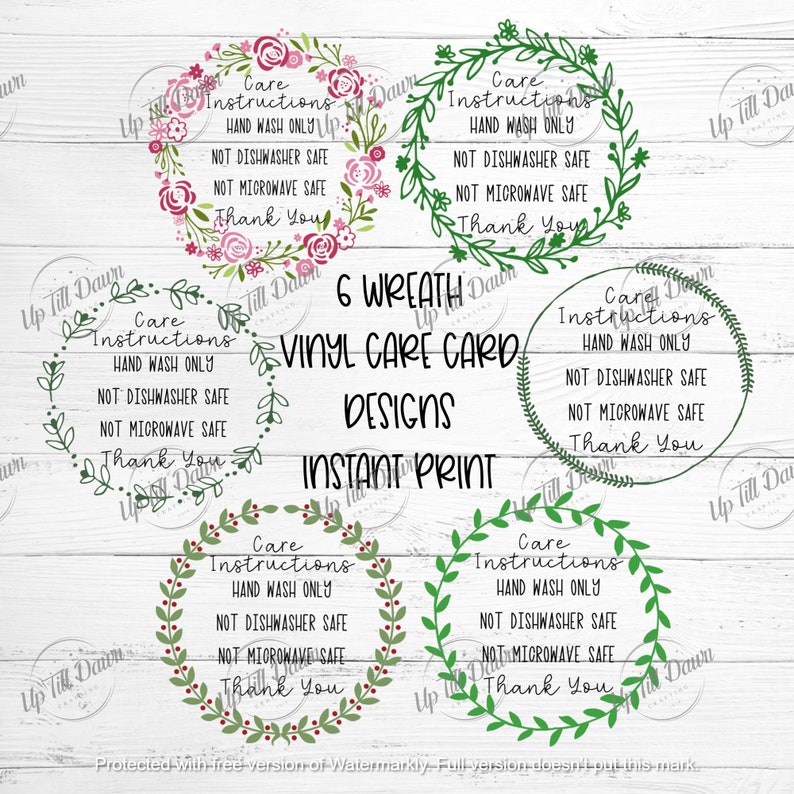 Care
Instructions
HAND WASH ONLY
NOT DISHWASHER SAFE
NOT MICROWAVE SAFE
Thank You
Care
Instructions
HAND WASH ONLY
NOT DISHWASHER SAFE
NOT MICROWAVE SAFE
Thank You
Care
Instructions
HAND WASH ONLY
NOT DISHWASHER SAFE
NOT MICROWAVE SAFE
Thank You
6 WREATH
VINYL CARE CARD
DESIGNS
INSTANT PRINT
Care
Instructions
HAND WASH ONLY
NOT DISHWASHER SAFE
NOT MICROWAVE SAFE
Thank You
Care
Instructions
HAND WASH ONLY
NOT DISHWASHER SAFE
NOT MICROWAVE SAFE
Thank You
Care
Instructions
HAND WASH ONLY
NOT DISHWASHER SAFE
NOT MICROWAVE SAFE
Thank You
Up Till Dawn
CRAFTING
Protected with free version of Watermarkly. Full version doesn't put this mark.